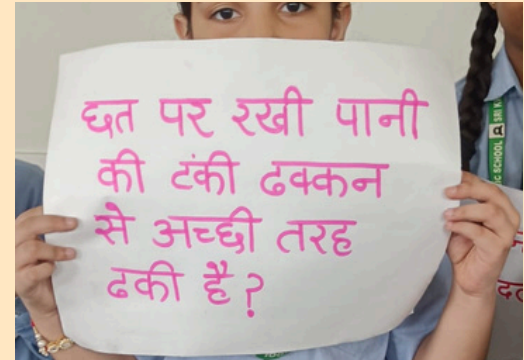 छत पर रखी पानी
की टंकी ढक्कन
से अच्छी तरह
ढकी है?
SCHOOL
SRI